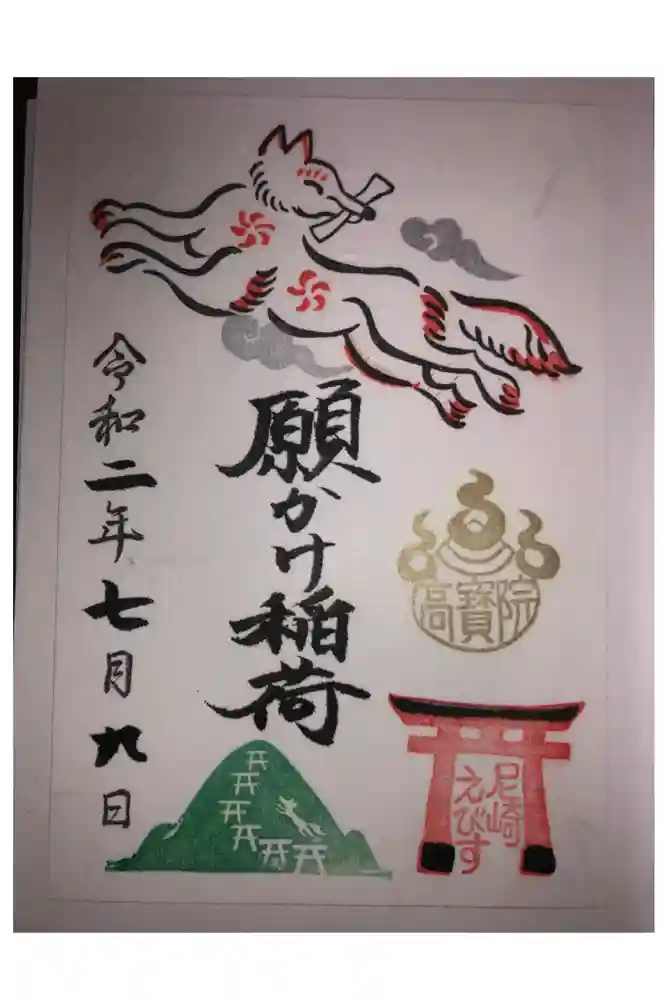 願かけ稲荷
令和二年七月九日
高寳院
尼崎
えびす